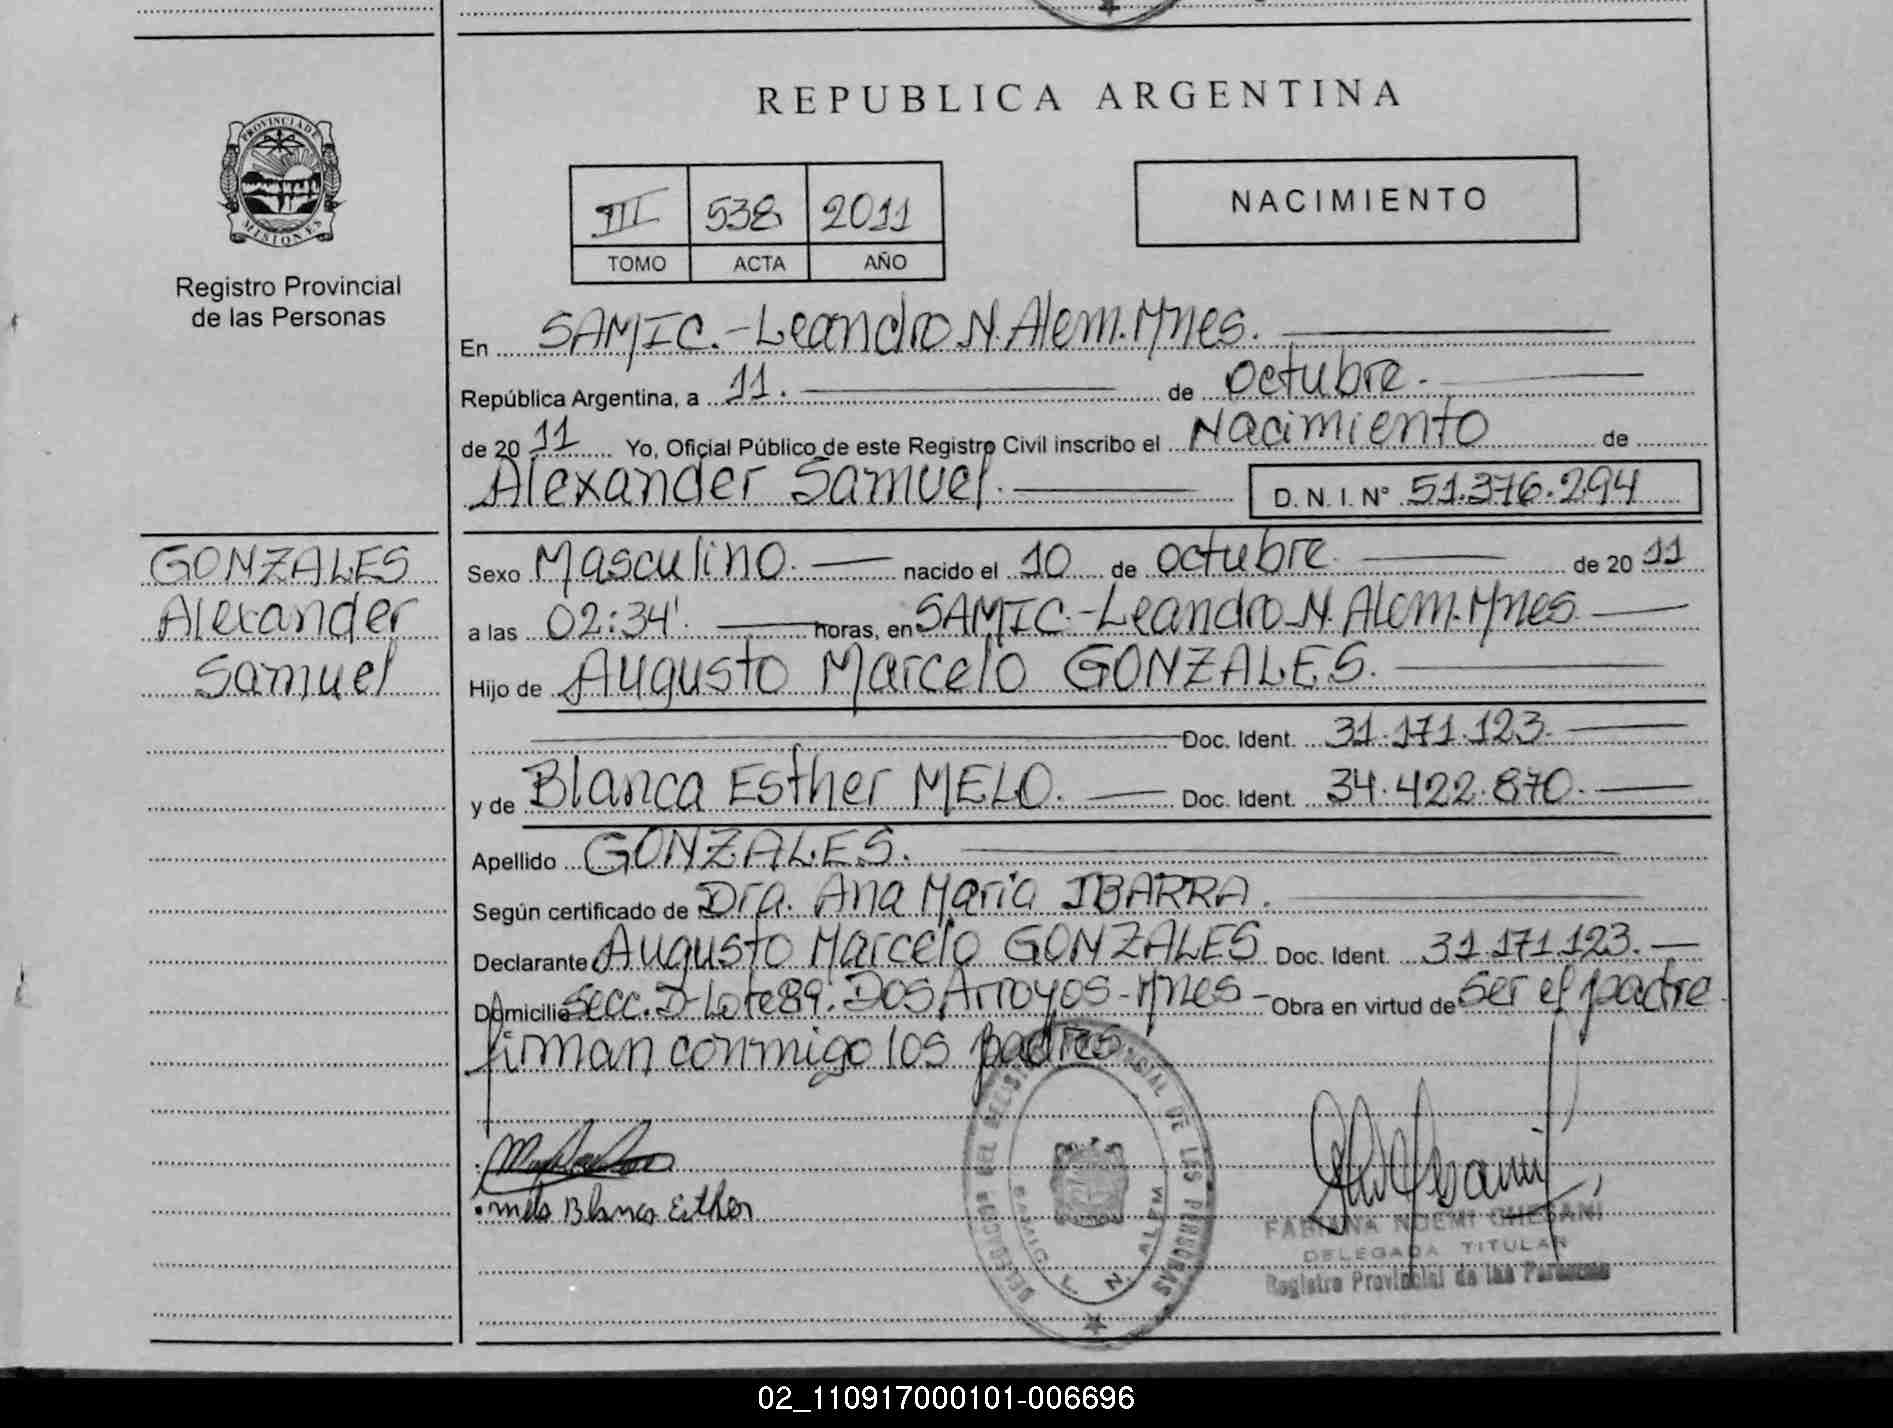 REPUBLICA ARGENTINA
PROVINCIA DE MISIONES
Registro Provincial
de las Personas
III 538 2011
TOMO ACTA AÑO
NACIMIENTO
En SAMIC.-Leandro N. Alem. Mnes.
República Argentina, a 11. de octubre.
de 2011 Yo, Oficial Público de este Registro Civil inscribo el Nacimiento de
Alexander Samuel. D. N. I. N° 51.376.294
GONZALES
Alexander
Samuel
Sexo Masculino. nacido el 10 de octubre. de 2011
a las 02:34'. horas, en SAMIC.-Leandro N. Alem. Mnes.
Hijo de Augusto Marcelo GONZALES.
Doc. Ident. 31.171.123.
y de Blanca Esther MELO. Doc. Ident. 34.422.870.
Apellido GONZALES.
Según certificado de Dra. Ana Maria IBARRA.
Declarante Augusto Marcelo GONZALES Doc. Ident. 31.171.123.
Domicilio Secc. D-Lote 89. Dos Arroyos-Mnes- Obra en virtud de ser el padre
firman conmigo los padres.
Melo Blanca Esther
DE LAS PERSONAS
SAMIC L. N. ALEM
FABIANA NOEMI GHESANI
DELEGADA TITULAR
Registro Provincial de las Personas
02_110917000101-006696